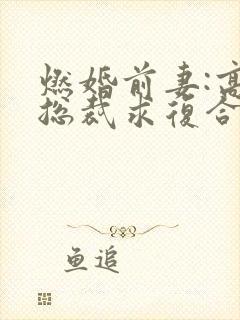 燃婚前妻:高
总裁求復合
鱼追